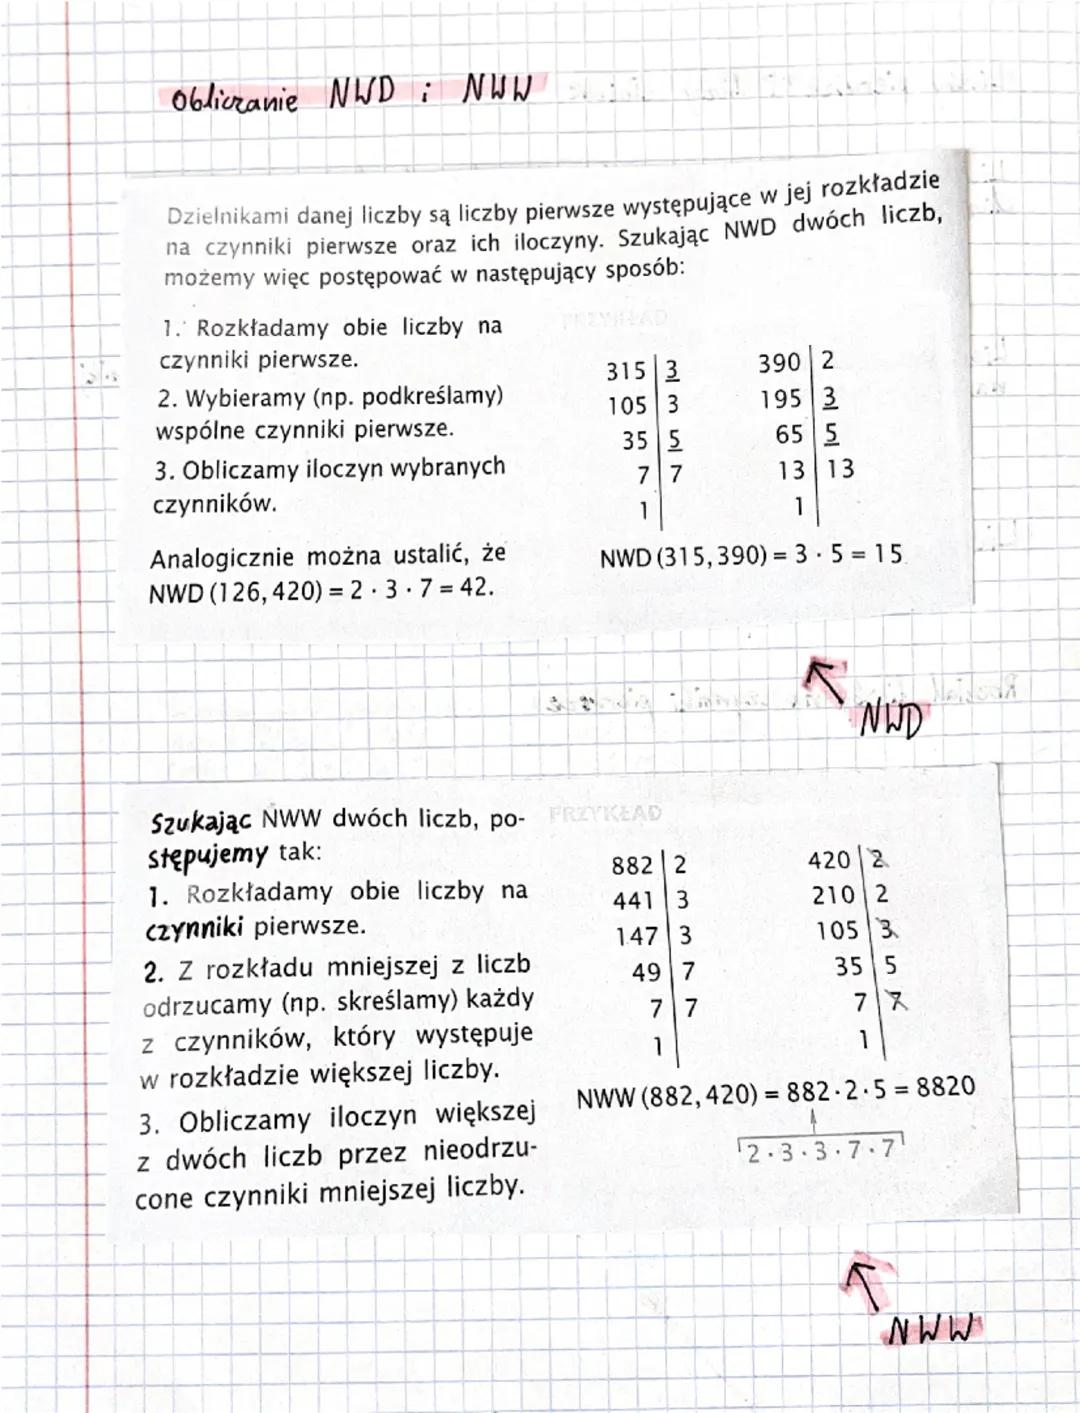 Obliczanie NWD i NWW
Dzielnikami danej liczby są liczby pierwsze występujące w jej rozkładzie
na czynniki pierwsze oraz ich iloczyny. Szukając NWD dwóch liczb,
możemy więc postępować w następujący sposób:
1. Rozkładamy obie liczby na
czynniki pierwsze.
2. Wybieramy (np. podkreślamy)
wspólne czynniki pierwsze.
3. Obliczamy iloczyn wybranych
czynników.
Analogicznie można ustalić, że
NWD (126, 420) = 2 · 3 · 7 = 42.
PRZYKŁAD
315 | 3 390 | 2
105 | 3 195 | 3
35 | 5 65 | 5
7 | 7 13 | 13
1 | 1 |
NWD (315, 390) = 3 · 5 = 15
NWD
Szukając NWW dwóch liczb, po-
stępujemy tak:
1. Rozkładamy obie liczby na
czynniki pierwsze.
2. Z rozkładu mniejszej z liczb
odrzucamy (np. skreślamy) każdy
z czynników, który występuje
w rozkładzie większej liczby.
3. Obliczamy iloczyn większej
z dwóch liczb przez nieodrzu-
cone czynniki mniejszej liczby.
PRZYKŁAD
882 | 2 420 | 2
441 | 3 210 | 2
147 | 3 105 | 3
49 | 7 35 | 5
7 | 7 7 | 7
1 | 1 |
NWW (882, 420) = 882 · 2 · 5 = 8820
2 · 3 · 3 · 7 · 7
NWW